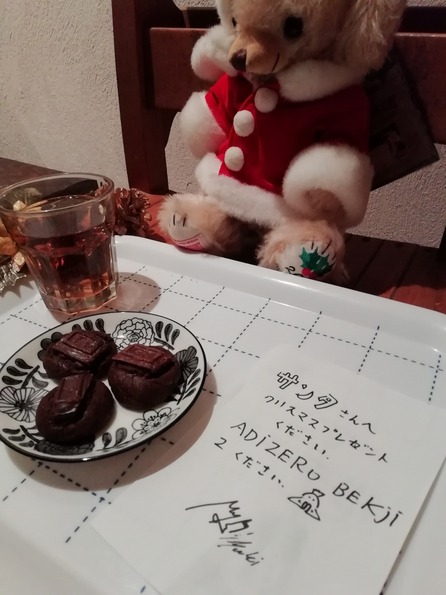 サンタさんへ
クリスマスプレゼント
ください.
ADIZERO BEKJi
2 ください.